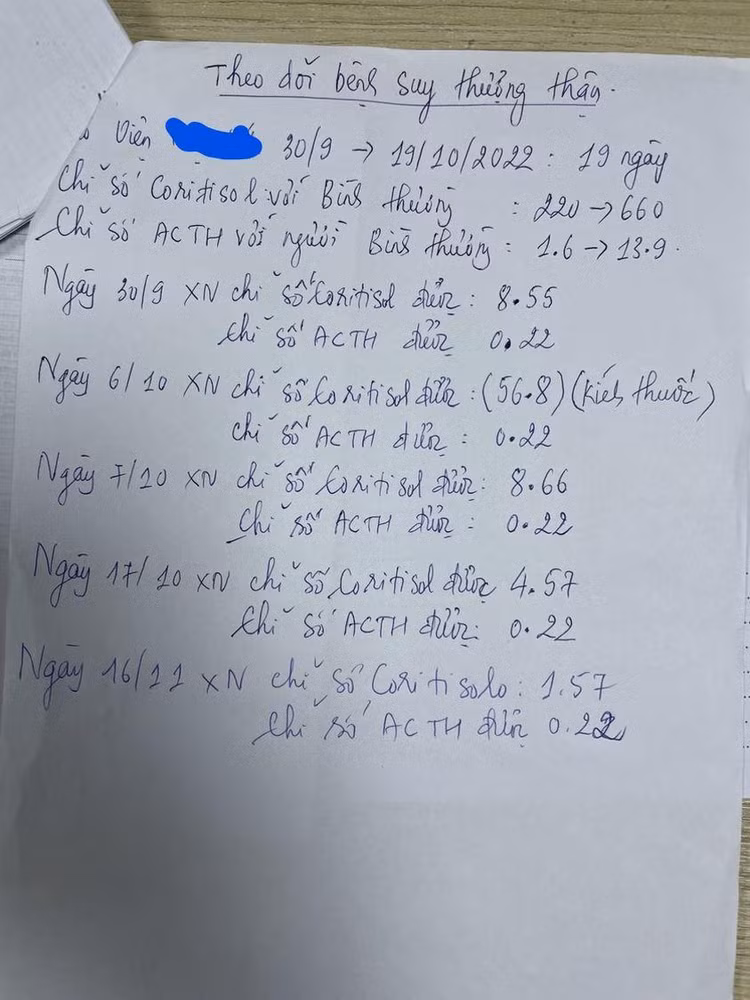 Theo dõi bệnh suy thượng thận.
Viện 30/9 → 19/10/2022 : 19 ngày
Chỉ số Coritisol với Bình thường : 220 → 660
Chỉ số ACTH với người Bình thường : 1.6 → 13.9.
Ngày 30/9 XN chỉ số Coritisol được : 8.55
Chỉ số ACTH được 0.22
Ngày 6/10 XN chỉ số Coritisol được : (56.8) (Kích thước)
Chỉ số ACTH được : 0.22
Ngày 7/10 XN chỉ số Coritisol được : 8.66
Chỉ số ACTH được : 0.22
Ngày 17/10 XN chỉ số Coritisol được 4.57
Chỉ số ACTH được: 0.22
Ngày 16/11 XN chỉ số Coritisolo : 1.57
Chỉ số ACTH được 0.22